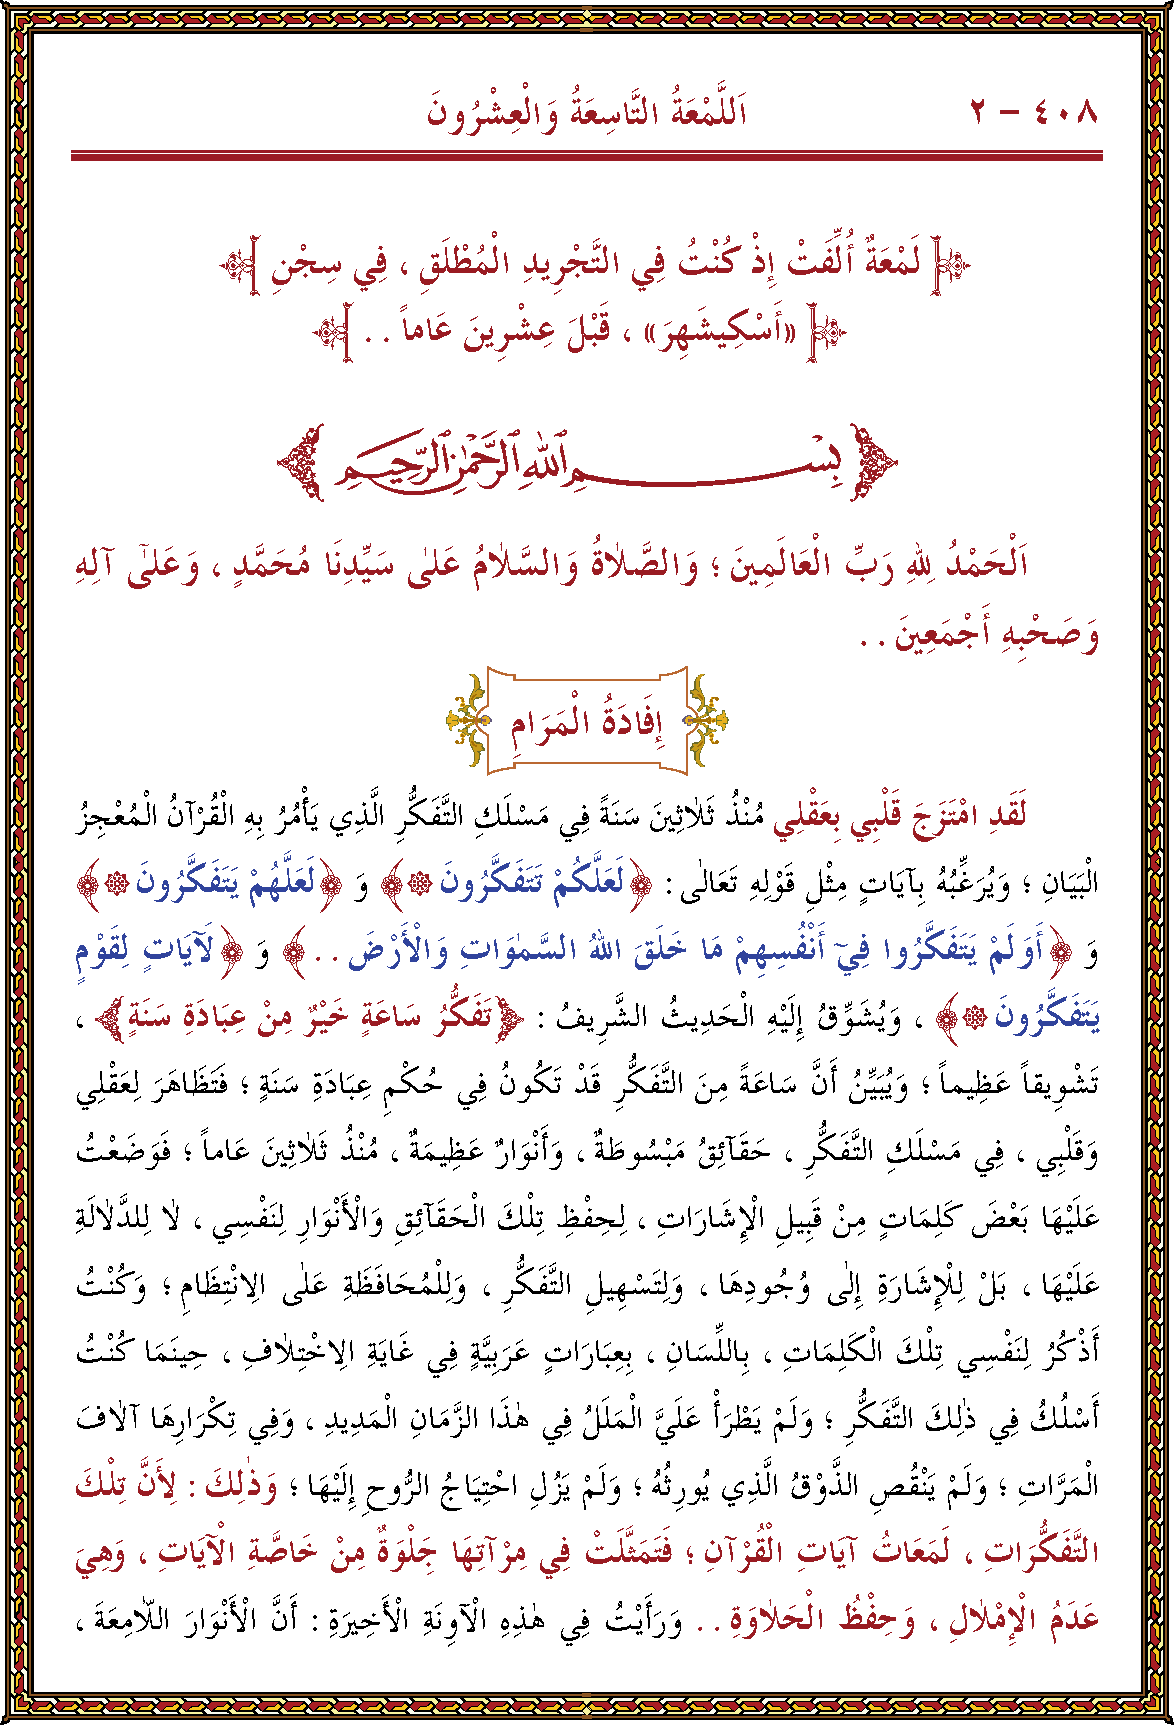 ٤٠٨ – ٢
اَللَّمْعَةُ التَّاسِعَةُ وَالْعِشْرُونَ
لَمْعَةٌ أُلِّفَتْ إِذْ كُنْتُ فِي التَّجْرِيدِ الْمُطْلَقِ ، فِي سِجْنِ
«أَسْكِيشَهِرَ» ، قَبْلَ عِشْرِينَ عَاماً . .
بِسْمِ ٱللهِ ٱلرَّحْمٰنِ ٱلرَّحِيمِ
اَلْحَمْدُ لِلهِ رَبِّ الْعَالَمِينَ ؛ وَالصَّلاٰةُ وَالسَّلاٰمُ عَلىٰ سَيِّدِنَا مُحَمَّدٍ ، وَعَلىٰٓ آلِهِ
وَصَحْبِهِ أَجْمَعِينَ . .
إِفَادَةُ الْمَرَامِ
لَقَدِ امْتَزَجَ قَلْبِي بِعَقْلِي مُنْذُ ثَلاٰثِينَ سَنَةً فِي مَسْلَكِ التَّفَكُّرِ الَّذِي يَأْمُرُ بِهِ الْقُرْآنُ الْمُعْجِزُ
الْبَيَانِ ؛ وَيُرَغِّبُهُ بِآيَاتٍ مِثْلِ قَوْلِهِ تَعَالٰى : ﴿لَعَلَّكُمْ تَتَفَكَّرُونَ ۞﴾ وَ ﴿لَعَلَّهُمْ يَتَفَكَّرُونَ ۞﴾
وَ ﴿أَوَلَمْ يَتَفَكَّرُوا فِيٓ أَنْفُسِهِمْ مَا خَلَقَ اللهُ السَّمٰوَاتِ وَالْأَرْضَ . . ﴾ وَ ﴿لَآيَاتٍ لِقَوْمٍ
يَتَفَكَّرُونَ ۞﴾ ، وَيُشَوِّقُ إِلَيْهِ الْحَدِيثُ الشَّرِيفُ : ﴿تَفَكُّرُ سَاعَةٍ خَيْرٌ مِنْ عِبَادَةِ سَنَةٍ﴾ ،
تَشْوِيقاً عَظِيماً ؛ وَيُبَيِّنُ أَنَّ سَاعَةً مِنَ التَّفَكُّرِ قَدْ تَكُونُ فِي حُكْمِ عِبَادَةِ سَنَةٍ ؛ فَتَظَاهَرَ لِعَقْلِي
وَقَلْبِي ، فِي مَسْلَكِ التَّفَكُّرِ ، حَقَآئِقُ مَبْسُوطَةٌ ، وَأَنْوَارٌ عَظِيمَةٌ ، مُنْذُ ثَلاٰثِينَ عَاماً ؛ فَوَضَعْتُ
عَلَيْهَا بَعْضَ كَلِمَاتٍ مِنْ قَبِيلِ الْإِشَارَاتِ ، لِحِفْظِ تِلْكَ الْحَقَآئِقِ وَالْأَنْوَارِ لِنَفْسِي ، لاٰ لِلدَّلاٰلَةِ
عَلَيْهَا ، بَلْ لِلْإِشَارَةِ إِلٰى وُجُودِهَا ، وَلِتَسْهِيلِ التَّفَكُّرِ ، وَلِلْمُحَافَظَةِ عَلٰى الِانْتِظَامِ ؛ وَكُنْتُ
أَذْكُرُ لِنَفْسِي تِلْكَ الْكَلِمَاتِ ، بِاللِّسَانِ ، بِعِبَارَاتٍ عَرَبِيَّةٍ فِي غَايَةِ الِاخْتِلاٰفِ ، حِينَمَا كُنْتُ
أَسْلُكُ فِي ذٰلِكَ التَّفَكُّرِ ؛ وَلَمْ يَطْرَأْ عَلَيَّ الْمَلَلُ فِي هٰذَا الزَّمَانِ الْمَدِيدِ ، وَفِي تِكْرَارِهَا آلاَفَ
الْمَرَّاتِ ؛ وَلَمْ يَنْقُصِ الذَّوْقُ الَّذِي يُورِثُهُ ؛ وَلَمْ يَزُلِ احْتِيَاجُ الرُّوحِ إِلَيْهَا ؛ وَذٰلِكَ : لِأَنَّ تِلْكَ
التَّفَكُّرَاتِ ، لَمَعَاتُ آيَاتِ الْقُرْآنِ ؛ فَتَمَثَّلَتْ فِي مِرْآتِهَا جَلْوَةٌ مِنْ خَاصَّةِ الْآيَاتِ ، وَهِيَ
عَدَمُ الْإِمْلاٰلِ ، وَحِفْظُ الْحَلاٰوَةِ . . وَرَأَيْتُ فِي هٰذِهِ الْآوِنَةِ الْأَخِيرَةِ : أَنَّ الْأَنْوَارَ اللاّٰمِعَةَ ،